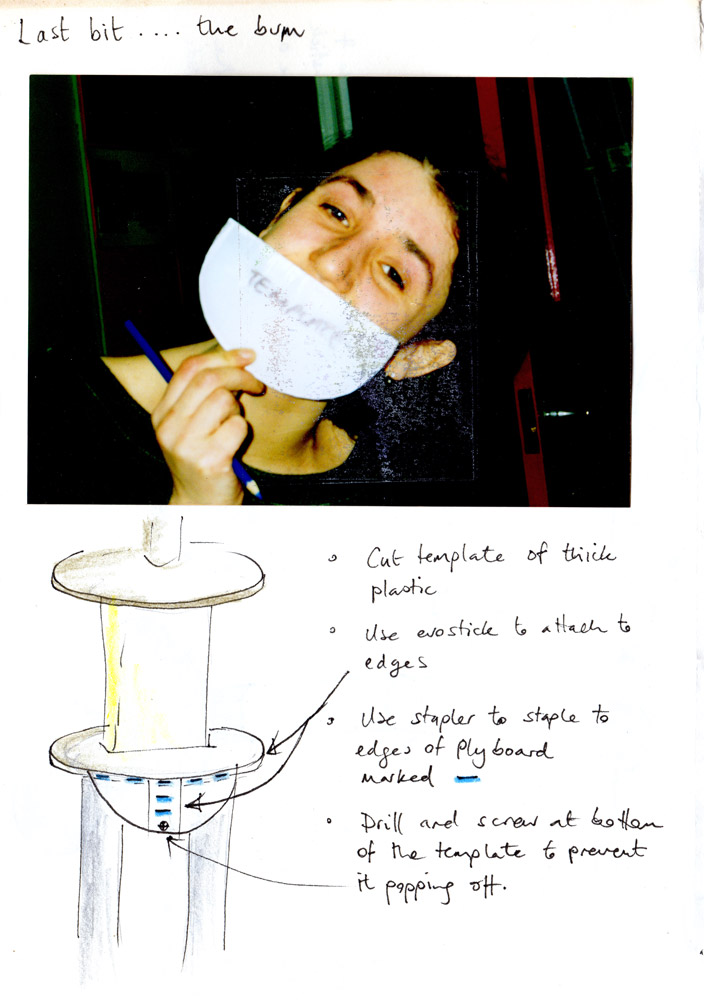 Last bit .... the bum
TEMPLATE
Cut template of thick
plastic
Use evostick to attach to
edges
Use stapler to staple to
edges of Plyboard
marked
Drill and screw at bottom
of the template to prevent
it popping off.